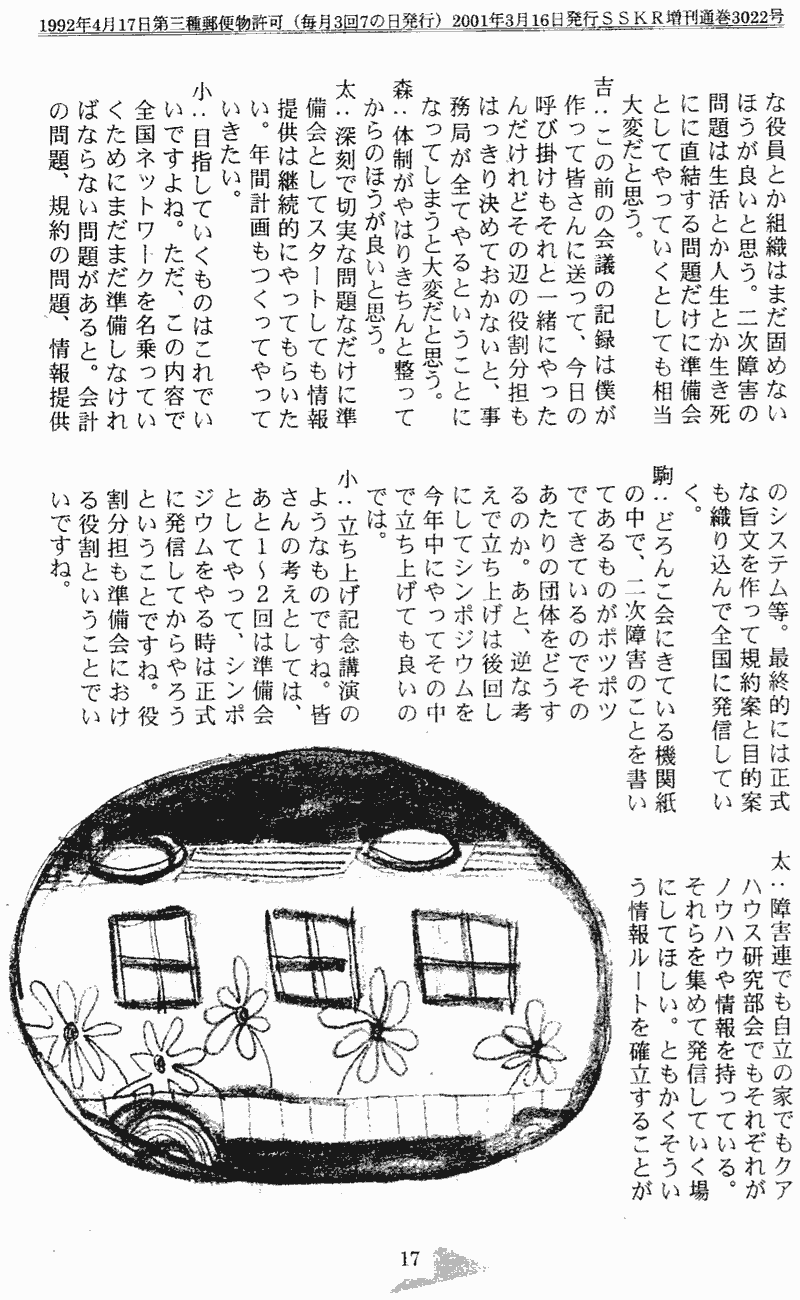 1992年4月17日第三種郵便物許可（毎月3回7の日発行）2001年3月16日発行ＳＳＫＲ増刊通巻3022号
な役員とか組織はまだ固めない
ほうが良いと思う。二次障害の
問題は生活とか人生とか生き死
にに直結する問題だけに準備会
としてやっていくとしても相当
大変だと思う。
吉：この前の会議の記録は僕が
作って皆さんに送って、今日の
呼び掛けもそれと一緒にやった
んだけれどその辺の役割分担も
はっきり決めておかないと、事
務局が全てやるということに
なってしまうと大変だと思う。
森：体制がやはりきちんと整って
からのほうが良いと思う。
太：深刻で切実な問題なだけに準
備会としてスタートしても情報
提供は継続的にやってもらいた
い。年間計画もつくってやって
いきたい。
小：目指していくものはこれでい
いですよね。ただ、この内容で
全国ネットワークを名乗ってい
くためにまだまだ準備しなけれ
ばならない問題があると。会計
の問題、規約の問題、情報提供
のシステム等。最終的には正式
な旨文を作って規約案と目的案
も織り込んで全国に発信してい
く。
駒：どろんこ会にきている機関紙
の中で、二次障害のことを書い
てあるものがポツポツ
でてきているのでその
あたりの団体をどうす
るのか。あと、逆な考
えで立ち上げは後回し
にしてシンポジウムを
今年中にやってその中
で立ち上げても良いの
では。
小：立ち上げ記念講演の
ようなものですね。皆
さんの考えとしては、
あと１～２回は準備会
としてやって、シンポ
ジウムをやる時は正式
に発信してからやろう
ということですね。役
割分担も準備会におけ
る役割ということでい
いですね。
太：障害連でも自立の家でもケア
ハウス研究部会でもそれぞれが
ノウハウや情報を持っている。
それらを集めて発信していく場
にしてほしい。ともかくそうい
う情報ルートを確立することが
17